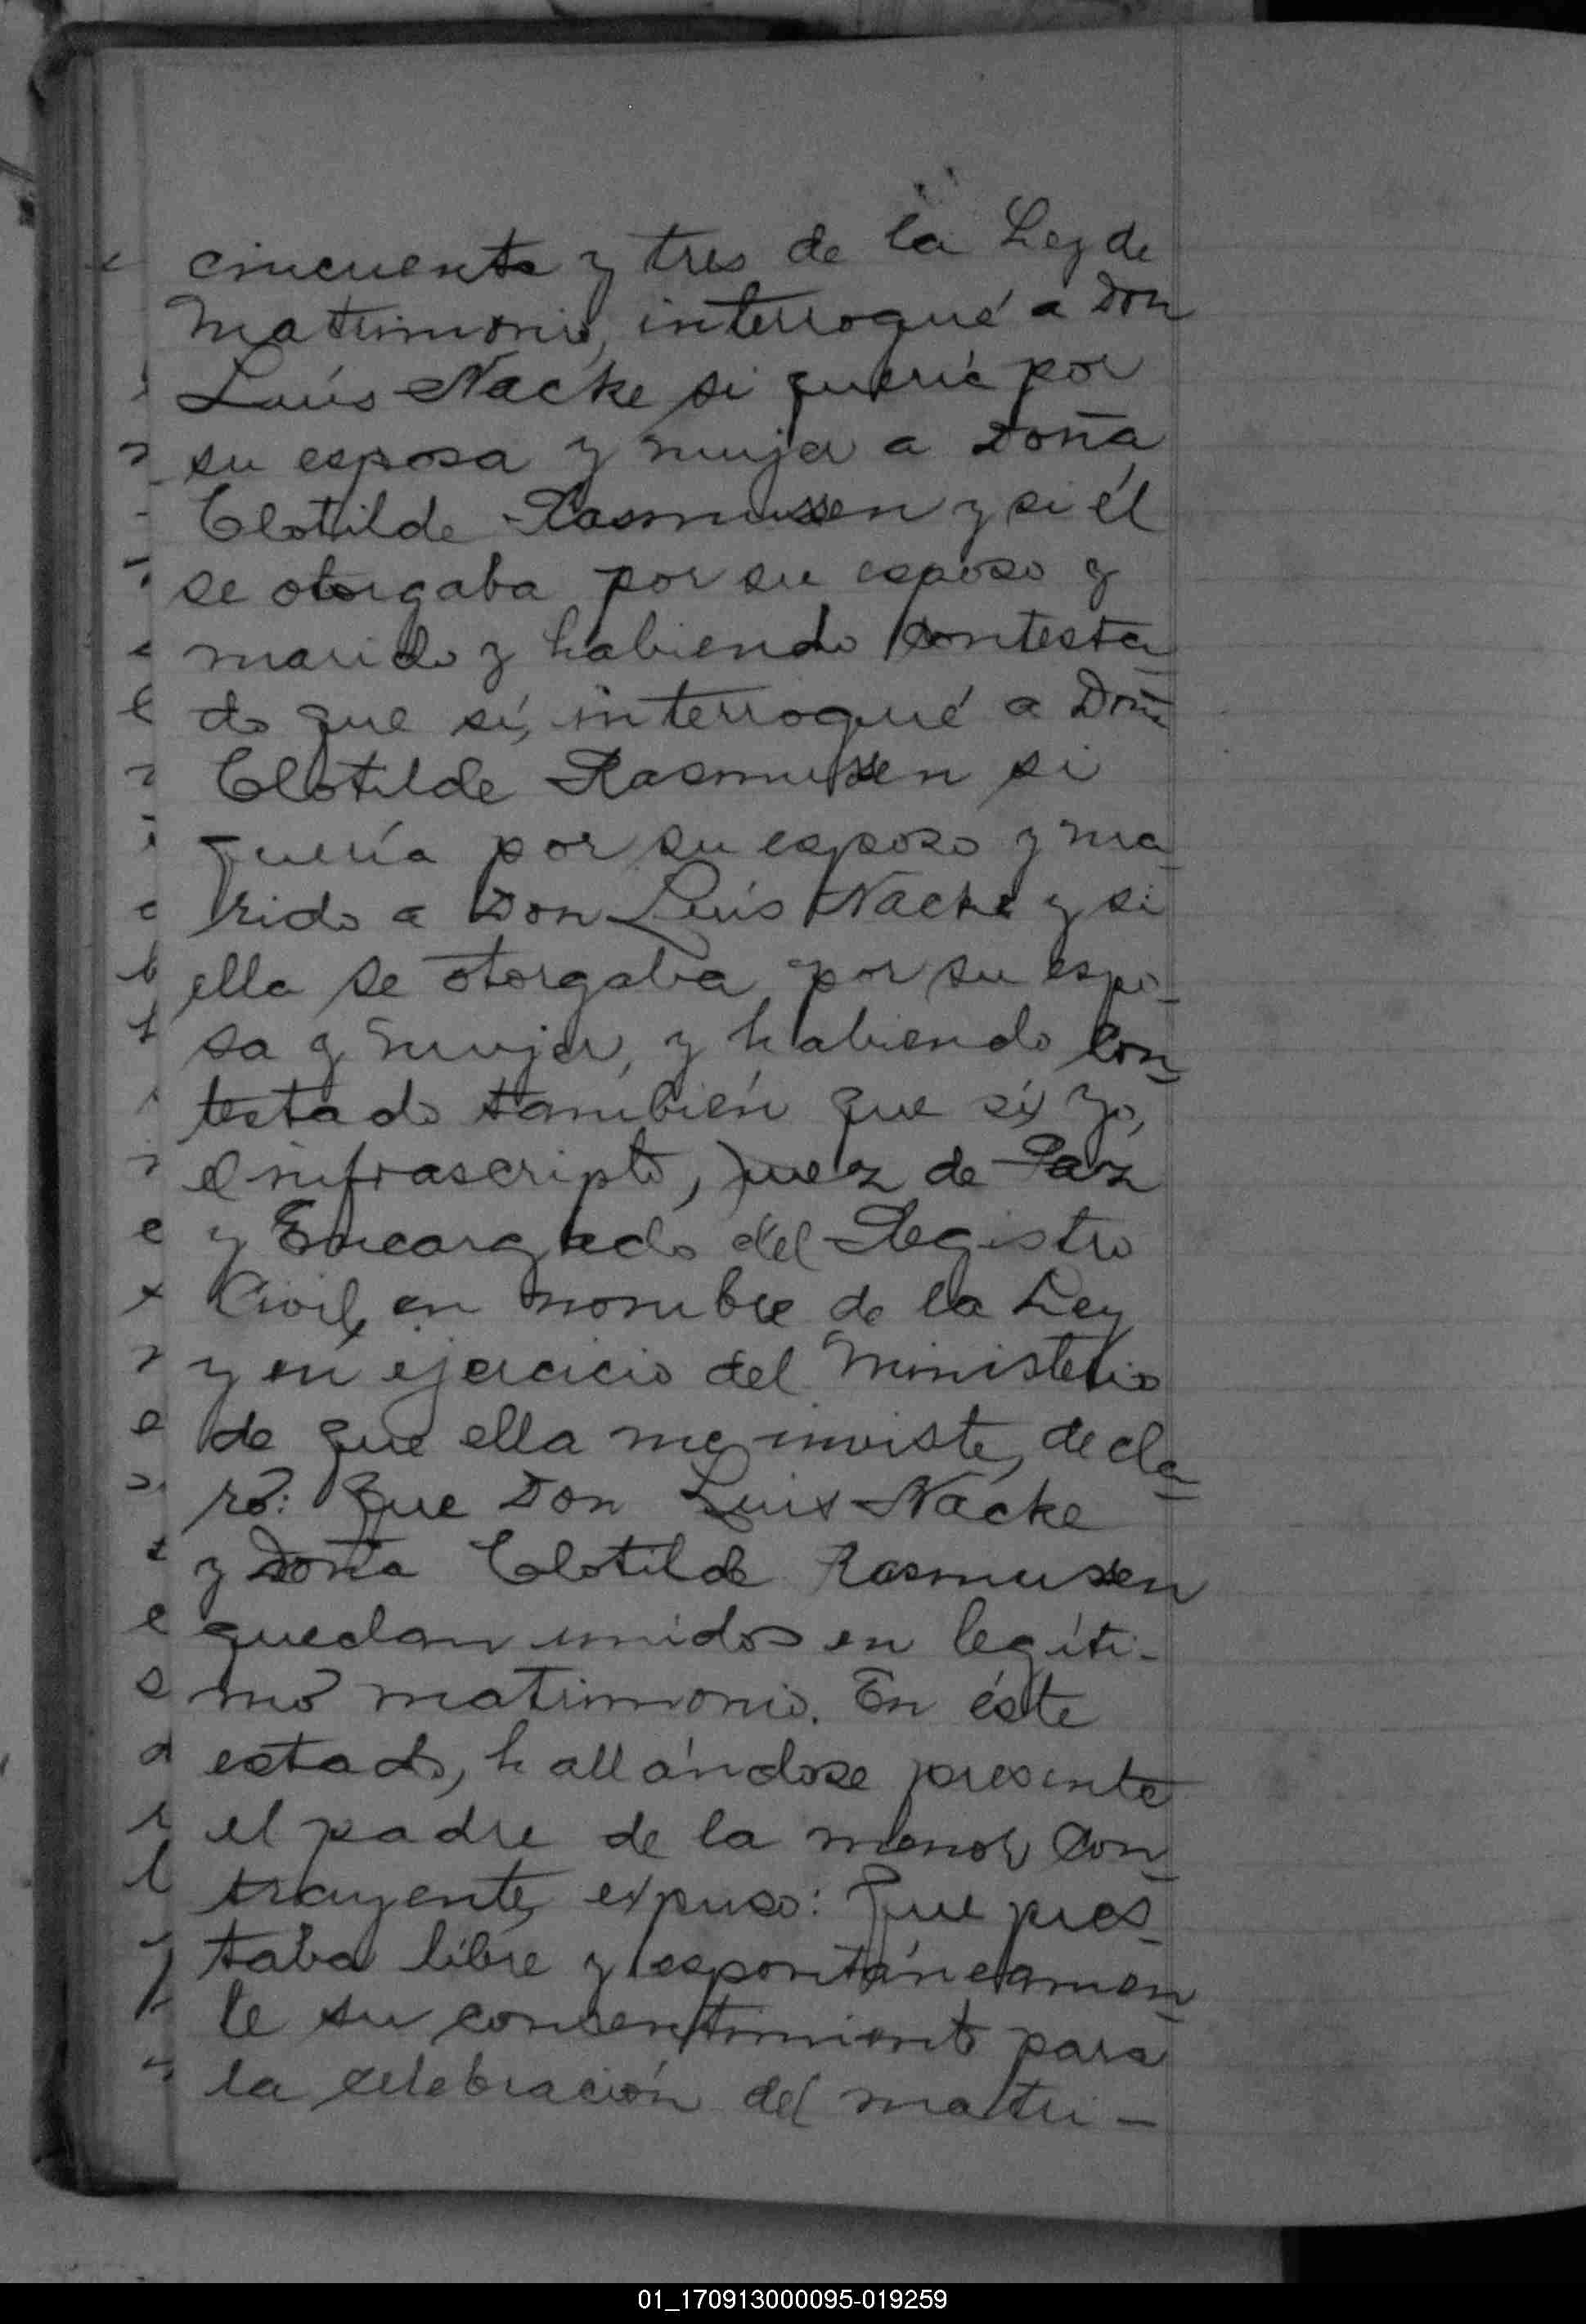 cincuenta y tres de la Ley de
Matrimonio, interrogué a Don
Luís Nacke si quería por
su esposa y mujer a Doña
Clotilde Rasmussen y si él
se otorgaba por su esposo y
marido y habiendo contesta
do que sí, interrogué a Doña
Clotilde Rasmussen si
quería por su esposo y ma
rido a Don Luís Nacke y si
ella se otorgaba por su espo-
sa y mujer, y habiendo con
testado también que sí, Yo,
el infrascripto, Juez de Paz
y Encargado del Registro
Civil, en nombre de la Ley
y en ejercicio del Ministerio
de que ella me inviste, decla
ró: Que Don Luis Nacke
y Doña Clotilde Rasmussen
quedan unidos en legíti-
mo matrimonio. En éste
estado, hallándose presente
el padre de la menor con
trayente, expuso: Que pres
taba libre y espontáneamen
te su consentimiento para
la celebración del matri-
01_170913000095-019259